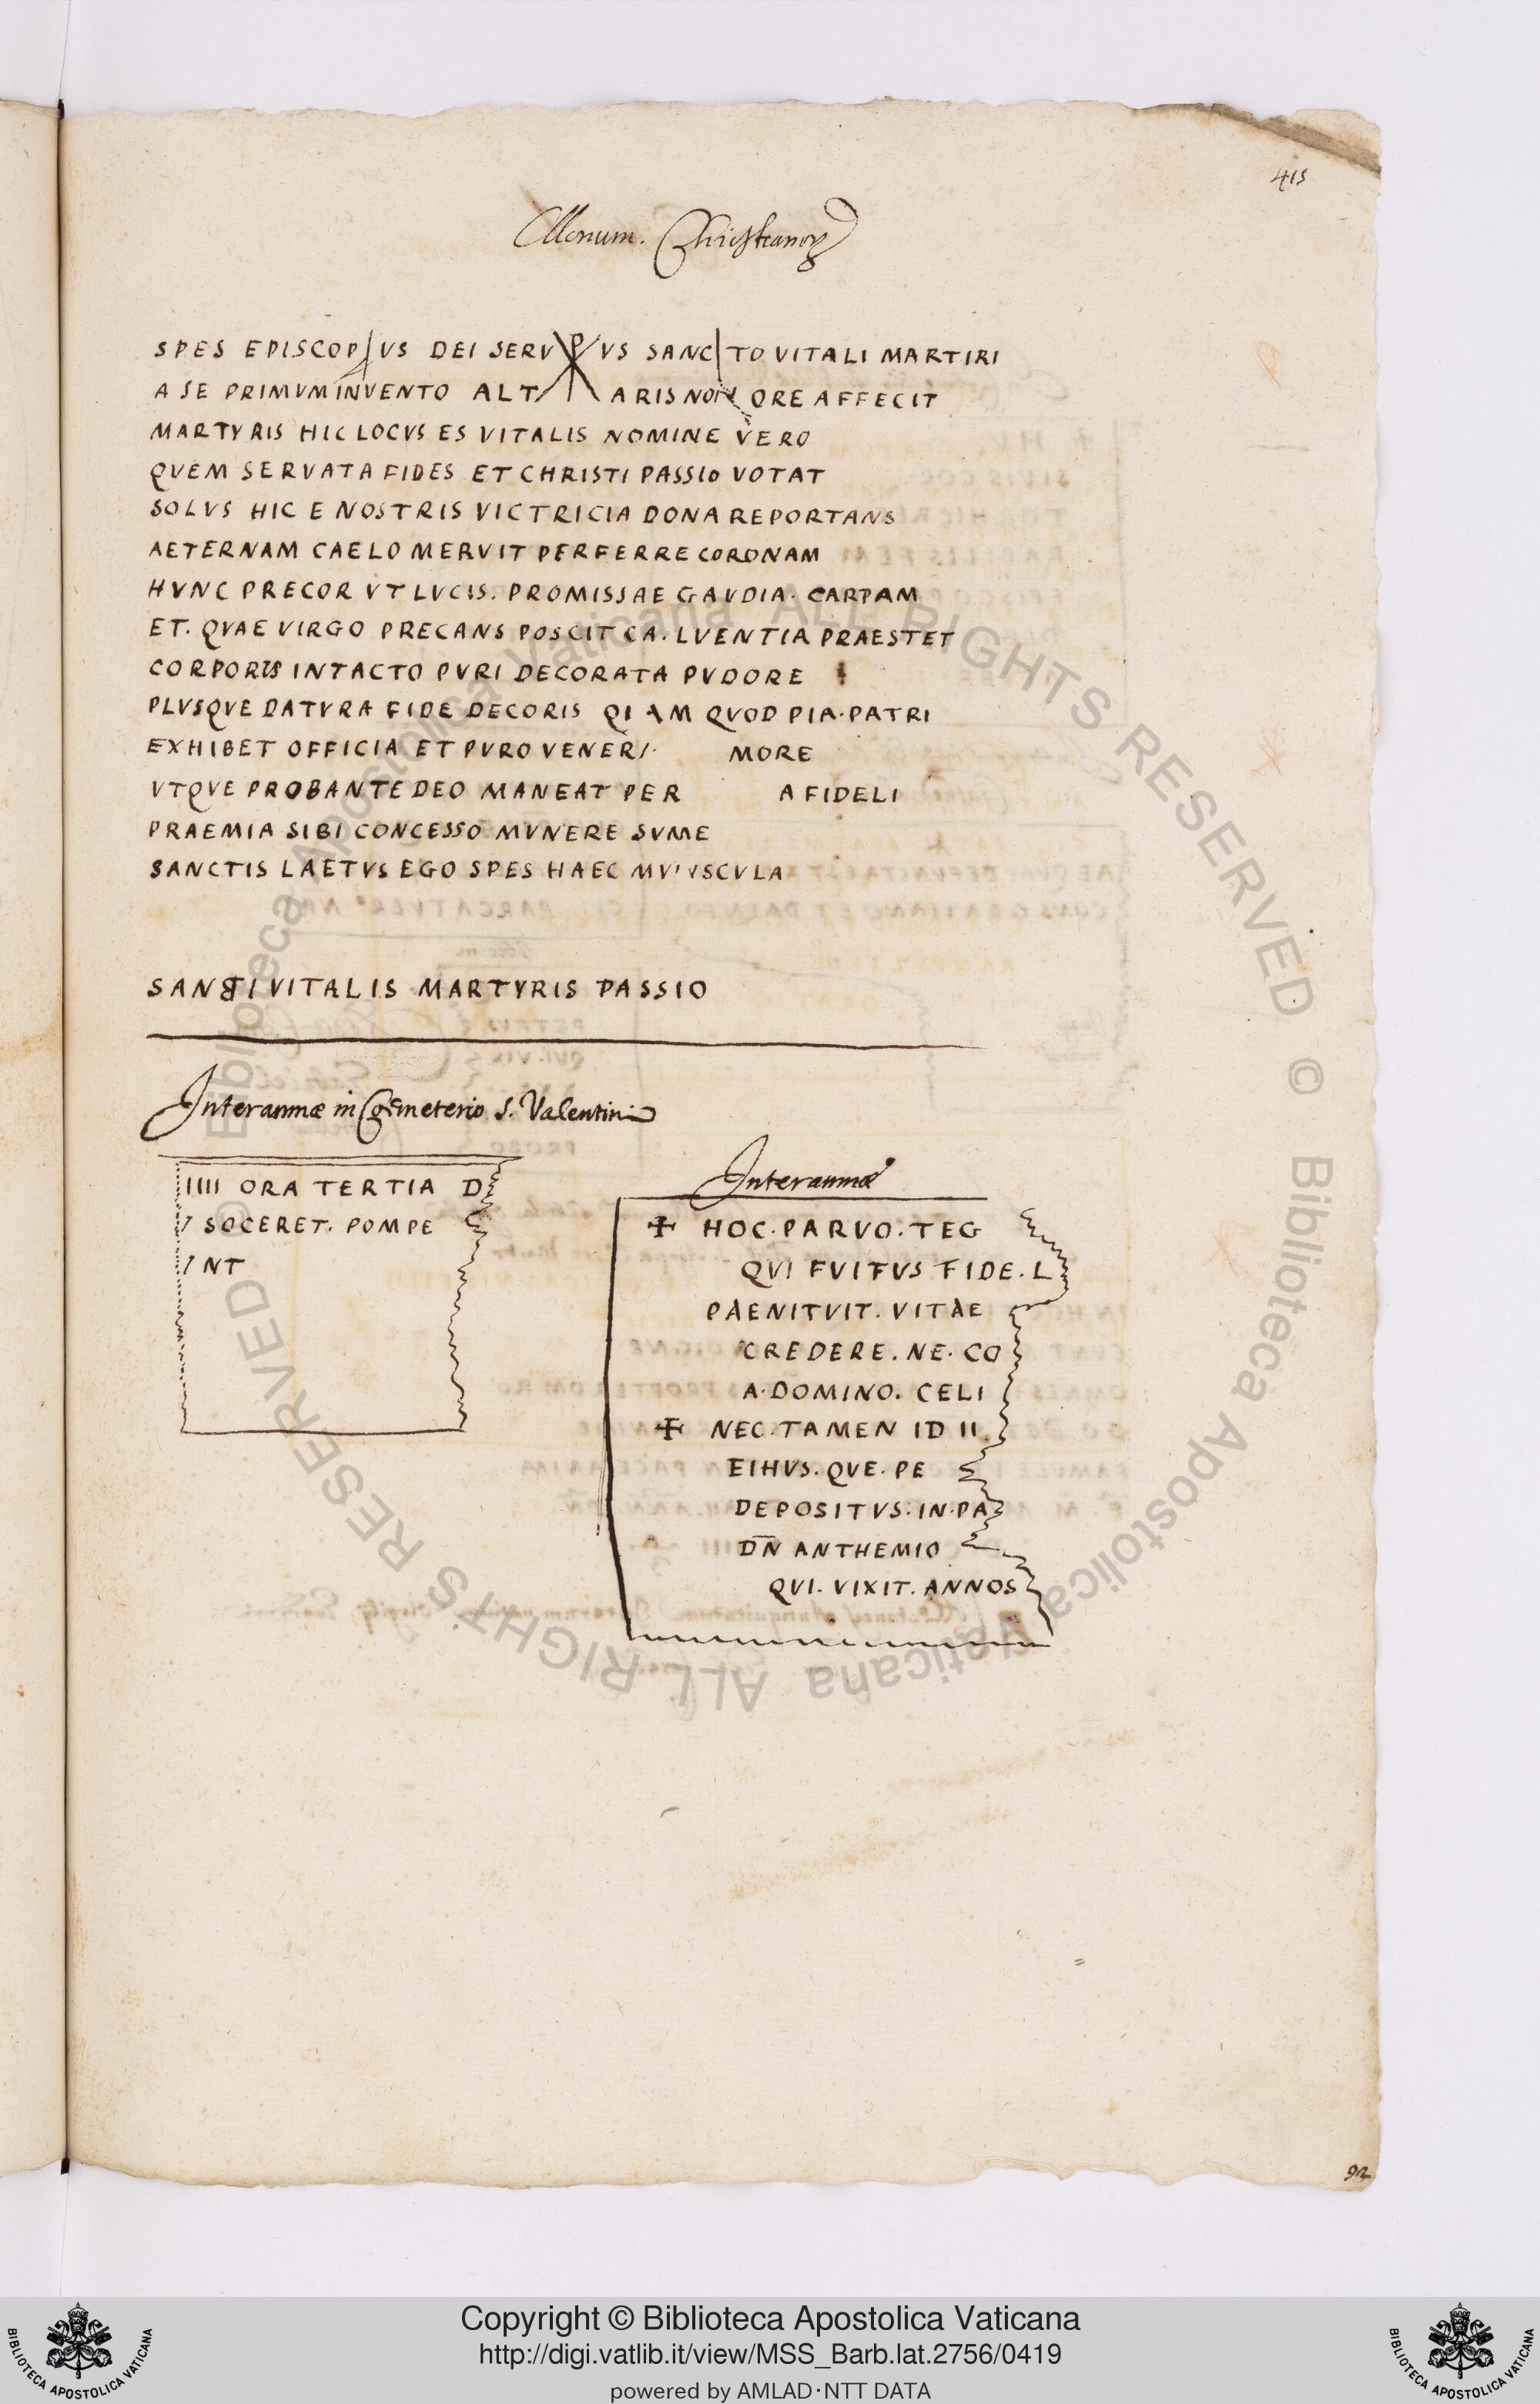 415
Monum. Christianorum
SPES EPISCOPVS DEI SERV ☧ VS SANCTO VITALI MARTIRI
A SE PRIMVM INVENTO ALTARIS NON ORE AFFECIT
MARTYRIS HIC LOCVS ES VITALIS NOMINE VERO
QVEM SERVATA FIDES ET CHRISTI PASSIO VOTAT
SOLVS HIC E NOSTRIS VICTRICIA DONA REPORTANS
AETERNAM CAELO MERVIT PERFERRE CORONAM
HVNC PRECOR VT LVCIS. PROMISSAE GAVDIA. CARPAM
ET. QVAE VIRGO PRECANS POSCIT CA. LVENTIA PRAESTET
CORPORIS INTACTO PVRI DECORATA PVDORE
PLVSQVE DATVRA FIDE DECORIS QI AM QVOD PIA. PATRI
EXHIBET OFFICIA ET PVRO VENERI MORE
VTQVE PROBANTE DEO MANEAT PER A FIDELI
PRAEMIA SIBI CONCESSO MVNERE SVME
SANCTIS LAETVS EGO SPES HAEC MVIVSCVLA
SANCTI VITALIS MARTYRIS PASSIO
Interamnæ in Cœmeterio S. Valentini
IIII ORA TERTIA D
SOCERET. POMPE
NT
Interamnæ
✝ HOC. PARVO. TEG
QVI FVITVS FIDE. L
PAENITVIT. VITAE
CREDERE. NE. CO
A. DOMINO. CELI
✝ NEC. TAMEN ID II.
EIHVS. QVE. PE
DEPOSITVS. IN. PA
DN̄ ANTHEMIO
QVI. VIXIT. ANNOS
92
© Biblioteca Apostolica Vaticana ALL RIGHTS RESERVED
© Biblioteca Apostolica Vaticana ALL RIGHTS RESERVED
Copyright © Biblioteca Apostolica Vaticana
http://digi.vatlib.it/view/MSS_Barb.lat.2756/0419
powered by AMLAD·NTT DATA
BIBLIOTECA APOSTOLICA VATICANA
BIBLIOTECA APOSTOLICA VATICANA